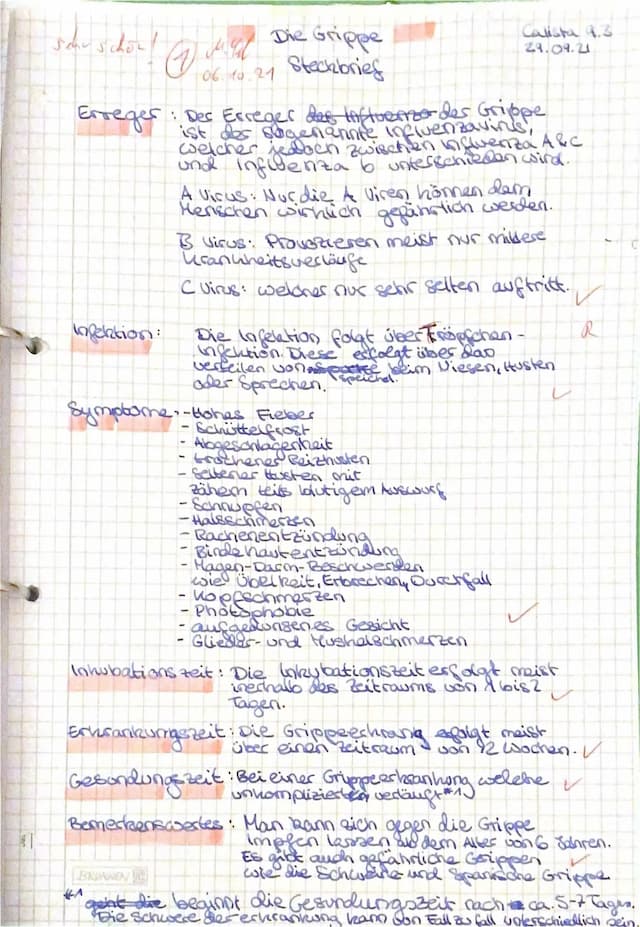 sehr schön! 1 Die Grippe Calista 9.3
06.10.21 29.09.21
Steckbrief
Erreger : Der Erreger des Influenza der Grippe
ist der sogenannte Influenzavirus,
welcher jedoch zwischen Influenza A & C
und Influenza b unterschieden wird.
A Virus: Nur die A Viren können dem
Menschen wirklich gefährlich werden.
B Virus: Provozieren meist nur mildere
Krankheitsverläufe
C Virus: welcher nur sehr selten auftritt.
Infektion: Die Infektion folgt über Tröpfchen- R
infektion. Diese erfolgt über das
verteilen von speichel beim Niesen, Husten
oder Sprechen.
Symptome: - Hohes Fieber
- Schüttelfrost
- Abgeschlagenheit
- trockener Reizhusten
- seltener Husten mit
zähem teils blutigem Auswurf
- Schnupfen
- Halsschmerzen
- Rachenentzündung
- Bindehautentzündung
- Magen-Darm-Beschwerden
wie Übelkeit, Erbrechen, Durchfall
- Kopfschmerzen
- Photophobie
- aufgedunsenes Gesicht
- Glieder- und Muskelschmerzen
Inkubationszeit: Die Inkubationszeit erfolgt meist
inerhalb des Zeitraums von 1 bis 2
Tagen.
Erkrankungszeit: Die Grippeerkrang efolgt meist
über einen Zeitraum von 12 Wochen.
Gesundungszeit: Bei einer Grippeerkrankung welche
unkompliziert verläuft *1)
Bemerkenswertes: Man kann sich gegen die Grippe
impfen lassen ab dem Alter von 6 Jahren.
Es gibt auch gefährliche Grippen
wie die Schweine und Spanische Grippe
BRUNNEN
*1 geht die beginnt die Gesundungszeit nach ca. 5-7 Tagen.
Die Schwere der erkrankung kann von Fall zu fall unterschiedlich sein.